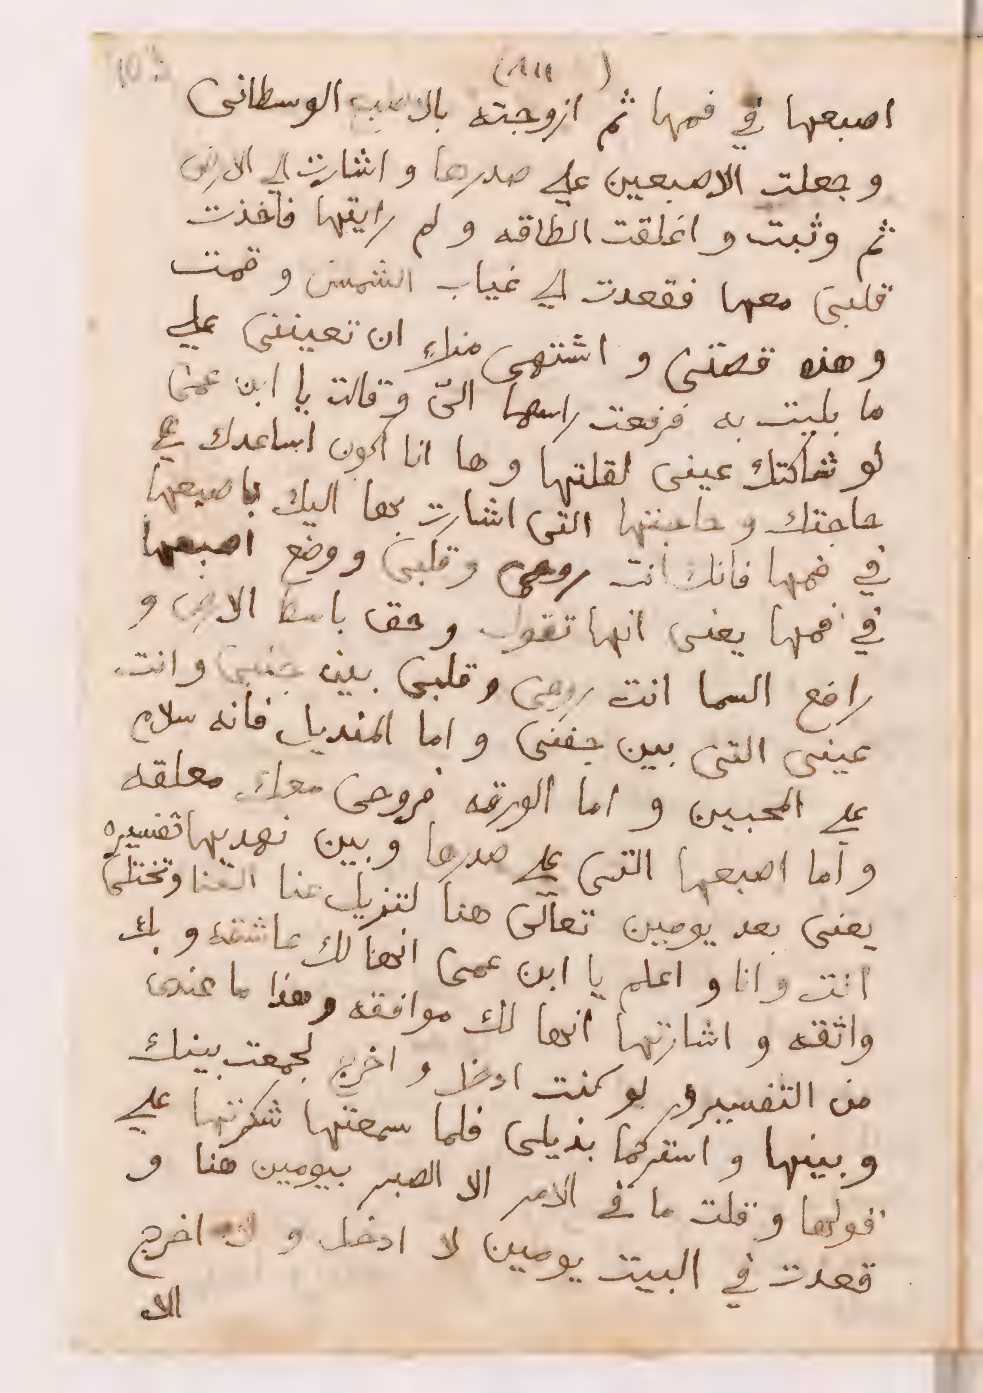 (١١١)
اصبعها في فمها ثم ازوجته بالاصبع الوسطانى
و جعلت الاصبعين علي صدرها و اشارت الي الارض
ثم وثبت و اغلقت الطاقه و لم رايتها فاخذت
قلبى معها فقعدت الي غياب الشمس و قمت
و هذه قصتى و اشتهى منك ان تعيننى علي
ما بليت به فرفعت راسها الىّ و قالت يا ابن عمى
لو شاكتك عينى لقلتها و ها انا اكون اساعدك في
حاجتك و حاجتها التى اشارت بها اليك باصبعها
في فمها فانك انت روحى و قلبى و وضع اصبعها
في فمها يعنى انها تقول و حق باسط الارض و
رافع السما انت روحى و قلبى بين جنبى و انت
عينى التى بين جفنى و اما المنديل فانه سلام
علي المحبين و اما الورقه فروحى معك معلقه
و اما اصبعها التى علي صدرها و بين نهديها تفسيره
يعنى بعد يومين تعالى هنا لتزيل عنا العنا و تختلى
انت و انا و اعلم يا ابن عمى انها لك عاشقه و بك
واثقه و اشارتها انها لك موافقه و هذا ما عندى
من التفسير و لو كنت ادخل و اخرج لجمعت بينك
و بينها و استركما بذيلى فلما سمعتها شكرتها علي
قولها و قلت ما في الامر الا الصبر بيومين هنا و
قعدت في البيت يومين لا ادخل و لا اخرج
الا